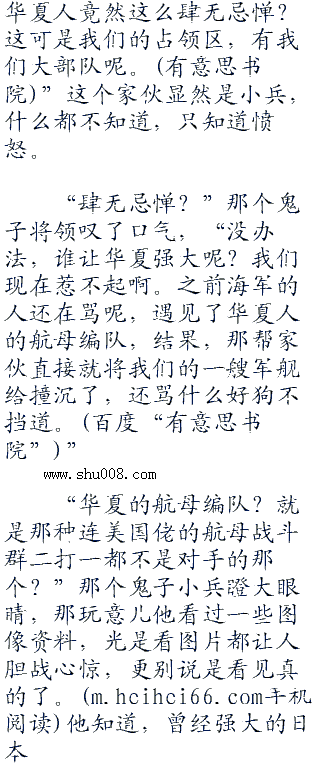 华夏人竟然这么肆无忌惮？
这可是我们的占领区，有我
们大部队呢。(有意思书
院)”这个家伙显然是小兵，
什么都不知道，只知道愤
怒。
“肆无忌惮？”那个鬼
子将领叹了口气，“没办
法，谁让华夏强大呢？我们
现在惹不起啊。之前海军的
人还在骂呢，遇见了华夏人
的航母编队，结果，那帮家
伙直接就将我们的一艘军舰
给撞沉了，还骂什么好狗不
挡道。(百度“有意思书
院”)”
www.shu008.com
“华夏的航母编队？就
是那种连美国佬的航母战斗
群二打一都不是对手的那
个？”那个鬼子小兵瞪大眼
睛，那玩意儿他看过一些图
像资料，光是看图片都让人
胆战心惊，更别说是看见真
的了。(m.hcihci66.com手机
阅读)他知道，曾经强大的日
本